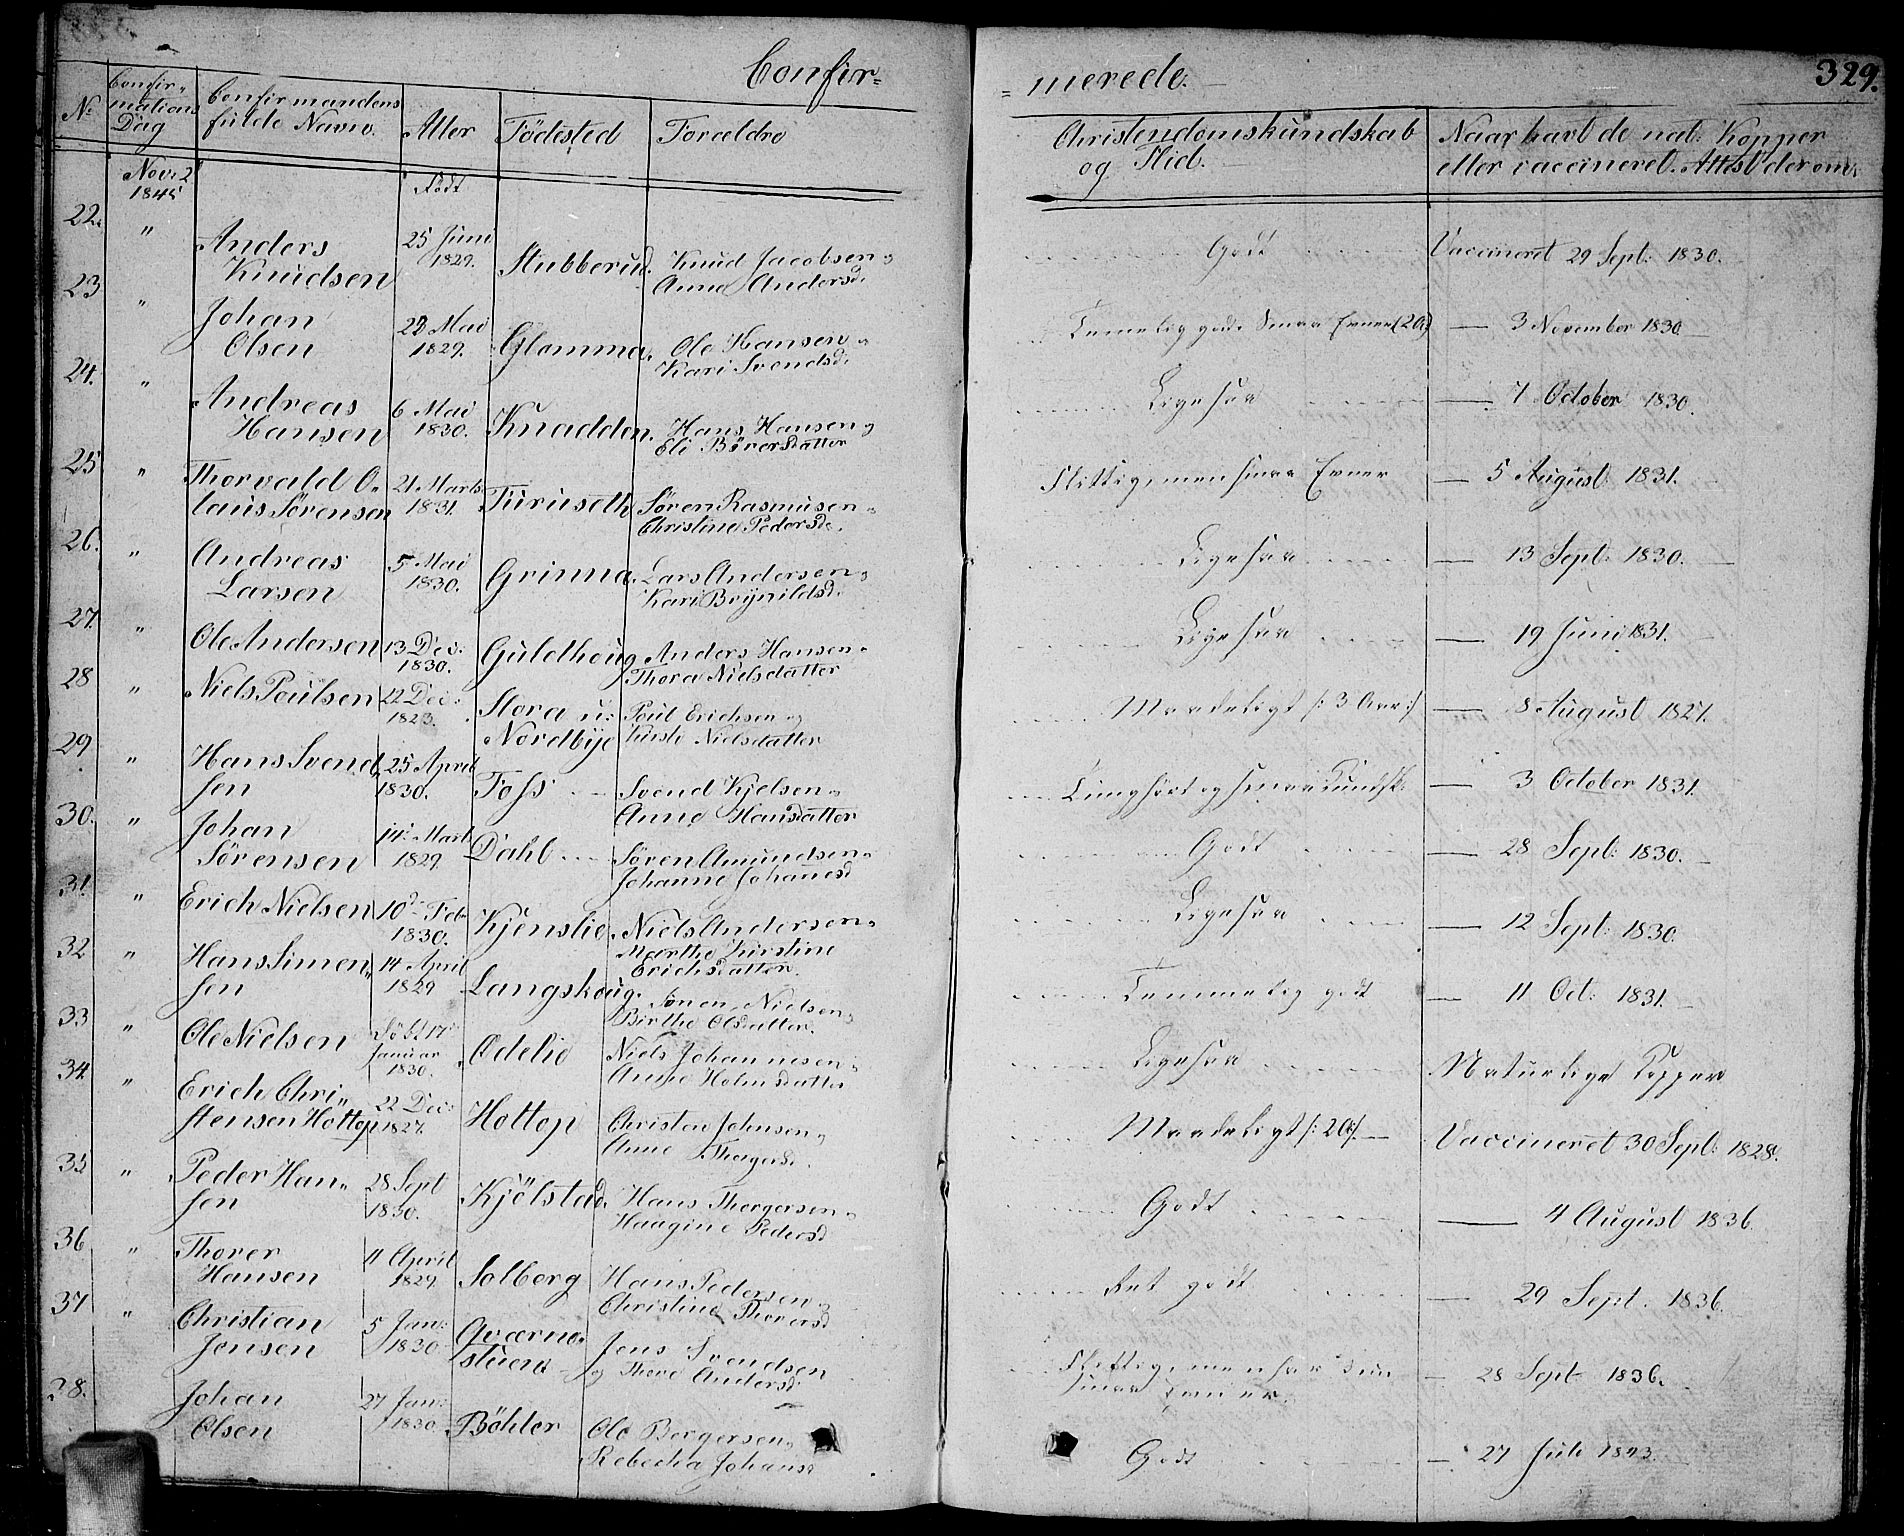 Confir=
=merede.
329.
No
Confir=
mations
Dag
Confirmandens
fulde Navn.
Alter
Födested
Forældre
Christendomskundskab
og Flid.
Naar havt de nat: Kopper
eller vaccineret. Attest derom.
Nov: 2
1845
Födt
22. " Anders Knudsen 25 Juni 1829. Stubberud. Knud Jacobsen og Anne Andersd. Godt Vaccineret 29 Sept: 1830.
23 " Johan Olsen 23 Mai 1829. Glomma. Ole Hansen og Kari Svendsd. Temelig godt. Smaa Evner — 3 November 1830
24. " Andreas Hansen 6 Mai 1830. Knadden. Hans Hansen og Eli Börersdatter Ligesaa — 7 October 1830.
25 " Thorvald Olaus Sørensen 21 Marts 1831. Turuseth Søren Rasmusen og Christine Pedersd. Flittig, men smaa Evner — 5 August 1831.
26. " Andreas Larsen 5 Mai 1830. Grinna. Lars Andersen og Kari Brynildsd. Ligesaa — 13 Sept: 1830.
27. " Ole Andersen 13 Dec: 1830. Guldhoug Anders Hansen og Thora Nielsdatter Ligesaa — 19 Juni 1831.
28 " Niels Poulsen 22 Dec: 1823. Stora u: Nordbye Poul Erichsen og Kirste Nielsdatter Maadeligt — 8 August 1827.
29 " Hans Svendsen 25 April 1830. Foss Svend Kjelsen og Anne Hansdatter Tunghört og smaa Kundsk: — 3 October 1831.
30. " Johan Sørensen 14 Mart 1829. Dahl Søren Amundsen og Johanne Johanesd Godt — 28 Sept: 1830.
31. " Erich Nielsen 10 Feb 1830. Kjenslie. Niels Andersen og Marthe Kirstine Erichsdatter. Ligesaa — 12 Sept: 1830.
32 " Hans Simensen 14 April 1829 Langskoug. Simen Nielsen og Birthe Olsdatter. Temmelig godt — 11 Oct: 1831.
33 " Ole Nielsen Född 17 Januar 1830. Ødelie Niels Johannesen og Anne Holmsdatter Ligesaa Naturlige Kopper
34. " Erich Christensen Hottop 22 Dec: 1827. Hottop Christen Johnsen og Anne Thorgersd. Maadeligt Vaccineret 30 Sept: 1828.
35 " Peder Hansen 28 Sept 1830. Kjölstad. Hans Thorgersen og Haagine Pedersd Godt — 4 August 1836.
36 " Thorer Hansen 11 April 1829. Solberg Hans Pedersen og Christine Thorersd Ret godt — 29 Sept. 1836.
37 " Christian Jensen 5 Jan: 1830 Qværnestuen Jens Svendsen og Thore Andersd. Flittig, men har kun smaa Evner. — 28 Sept 1836.
38. Johan Olsen 27 Jan: 1830. Böhler Ole Bergersen og Rebecka Johans Godt — 27 Juli 1843.